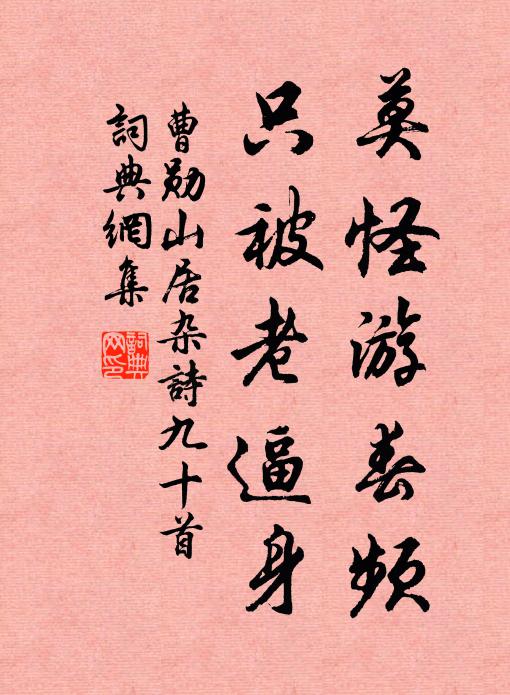 莫怪游春频
只被老逼身
曹勋山居杂詩九十首
詞典網集
詞典網印